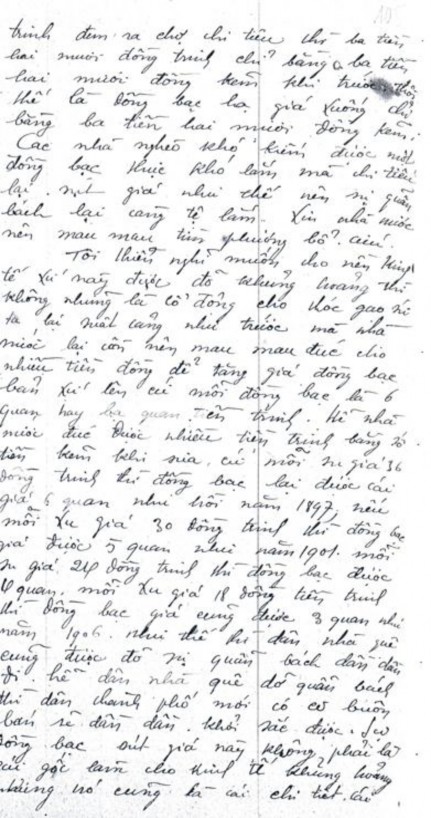 trinh đem ra chợ chi tiêu thì ba tiền
hai mươi đồng trinh chỉ bằng ba tiền
hai mươi đồng kẽm khi trước,
thế là đồng bạc hạ giá xuống chỉ
bằng ba tiền hai mươi đồng kẽm,
Các nhà nghèo khó kiếm được một
đồng bạc thực khó lắm mà chi tiêu
lại sụt giá như thế nên sự quẫn
bách lại càng tệ lắm. Xin nhà nước
nên mau mau tìm phương bổ cứu.
Tôi thiển nghĩ muốn cho nền kinh
tế xứ này được đỡ khủng hoảng thì
không những là cổ động cho thóc gạo xứ
ta lại xuất cảng như trước mà nhà
nước lại còn nên mau mau đúc cho
nhiều tiền đồng để tăng giá đồng bạc
bản xứ lên cứ mỗi đồng bạc là 6
quan hay ba quan tiền trinh. Hễ nhà
nước đúc được nhiều tiền trinh bằng số
tiền kẽm khi xưa, cứ mỗi xu giá 36
đồng trinh thì đồng bạc lại được cái
giá 6 quan như hồi năm 1897, nếu
mỗi xu giá 30 đồng trinh thì đồng bạc
giá được 5 quan như năm 1901. mỗi
xu giá 24 đồng trinh thì đồng bạc được
4 quan, mỗi xu giá 18 đồng tiền trinh
thì đồng bạc giá cũng được 3 quan như
năm 1906. như thế thì dân nhà quê
cũng được đỡ sự quẫn bách dần dần
đi hễ dân nhà quê đỡ quẫn bách
thì dân thành phố mới có cơ buôn
bán rẻ dần dần khởi sắc được. Sự
đồng bạc sút giá này không phải là
cái gốc làm cho kinh tế khủng hoảng
nhưng nó cũng là cái chi tiết. cái